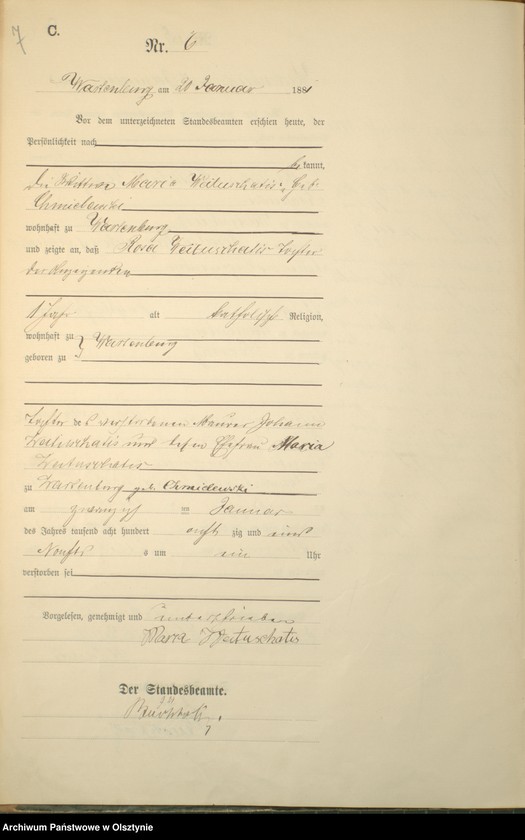 7
C.
Nr. 6
Wartenburg am 20 Januar 1881
Vor dem unterzeichneten Standesbeamten erschien heute, der
Persönlichkeit nach
be kannt,
die Wittwe Maria Weituschatis geb.
Chmielewski
wohnhaft zu Wartenburg
und zeigte an, daß Rosa Weituschatis Tochter
der
1 Jahr alt katholisch Religion,
wohnhaft zu } Wartenburg
geboren zu
Tochter des verstorbenen Maurer Johann
Weituschatis und dessen Ehefrau Maria
Weituschatis
zu Wartenburg geb. Chmielewski
am zwanzigsten Januar
des Jahres tausend acht hundert acht zig und eins
Nachts um ein Uhr
verstorben sei
Vorgelesen, genehmigt und unterschrieben
Maria Weituschatis
Der Standesbeamte.
Archiwum Państwowe w Olsztynie